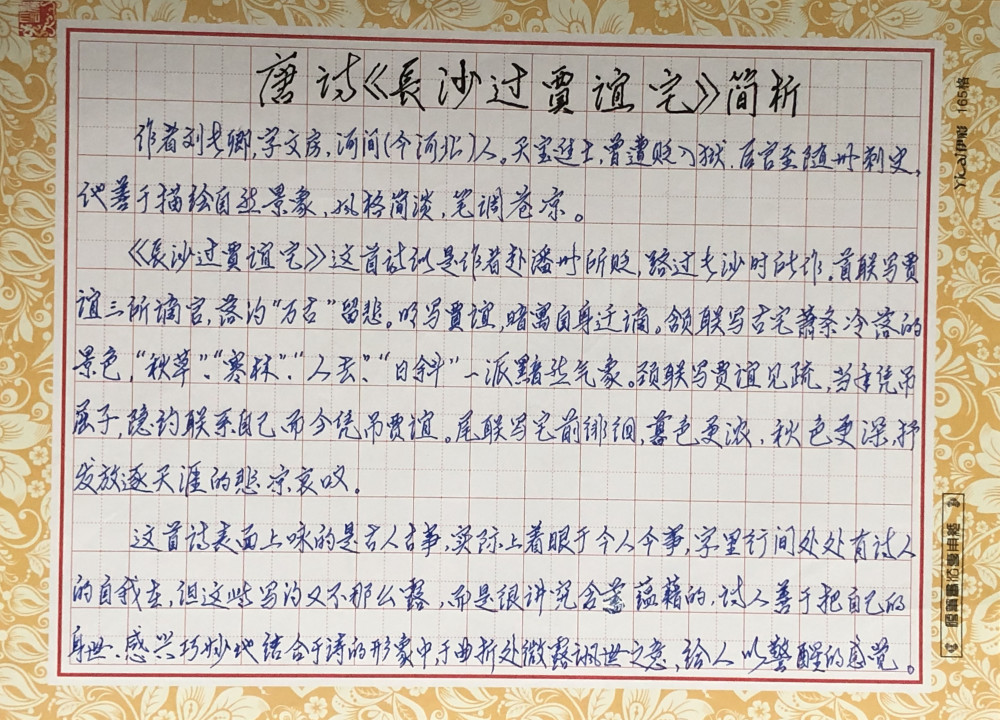 唐诗《長沙过賈谊宅》简析
作者刘长卿,字文房,河间(今河北)人。天宝进士,曾遭贬入狱,后官至随州刺史,
他善于描绘自然景象,风格简淡,笔调苍凉。
《長沙过賈谊宅》这首诗似是作者赴潘州所贬,路过长沙时所作。首联写贾
谊三所谪官,落的“万古”留悲。明写賈谊,暗寓自身迁谪。颔联写古宅萧条冷落的
景色,“秋草”、“寒林”、“人去”、“日斜”一派黯然气象。颈联写贾谊见疏,当年凭吊
屈子,隐约联系自己而今凭吊贾谊。尾联写宅前徘徊,暮色更浓,秋色更深,抒
发放逐天涯的悲凉哀叹。
这首诗表面上咏的是古人古事,实际上着眼于今人今事,字里行间处处有诗人
的自我在,但这些写的又不那么露,而是很讲究含蓄蕴藉的,诗人善于把自己的
身世、感兴巧妙地结合于诗的形象中,于曲折处微露讽世之意,给人以警醒的感觉。
Yikai伊彩 165格